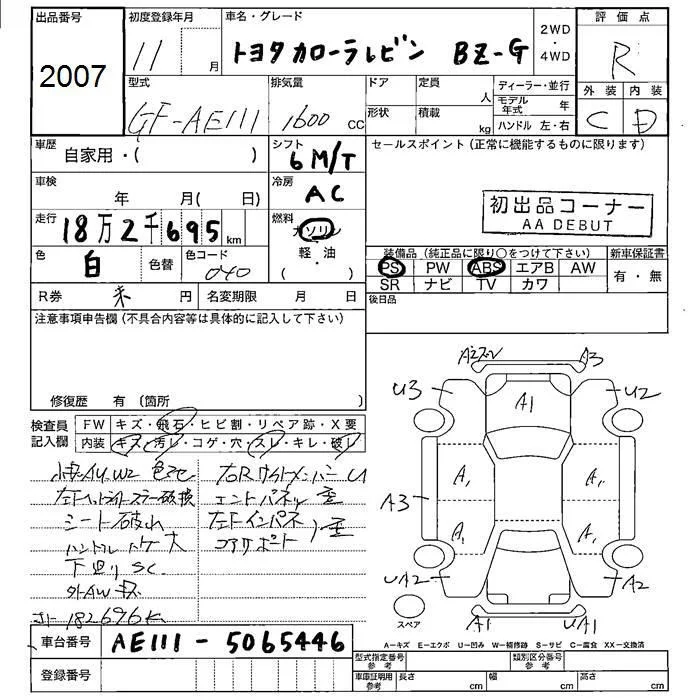 出品番号 初度登録年月 車名・グレード 2WD・4WD 評価点
2007 11 月 トヨタカローラレビン BZ-G R
型式 排気量 ドア 定員 人 ディーラー・並行 外装 内装
GF-AE111 1600 CC 形状 積載 kg モデル年式 年 C D
ハンドル 左・右
車歴 自家用・( ) シフト 6 M/T セールスポイント(正常に機能するものに限ります)
車検 年 月( 日) 冷房 AC
初出品コーナー
AA DEBUT
走行 18万2千695km 燃料 ガソリン・軽・油
色 白 色替 色コード 040
装備品(純正品に限り○をつけて下さい) 新車保証書
PS PW ABS エアB AW 有・無
SR ナビ TV カワ
R券 未 円 名変期限 月 日 後日品
注意事項申告欄(不具合内容等は具体的に記入して下さい)
修復歴 有(箇所 )
検査員記入欄 FW キズ・飛石・ヒビ割・リペア跡・X要
内装 キズ・汚レ・コゲ・穴・スレ・キレ・破レ
シート破れ
ハンドル
下廻りSC
182696K
右Rサイドメンバー U
エンドパネル 歪
左Fインパネ
コアサポート 歪
A3
U3 A1 U2
A1 A1
A3
A1 A1
UA2 A2
スペア A1 UA1
A-キズ E-エクボ U-凹み W-補修跡 S-サビ C-腐食 XX-交換済
車台番号 AE111-5065446
登録番号
型式指定番号 参考 類別区分番号 参考
車庫証明用 参考 長さ cm 幅 cm 高さ cm